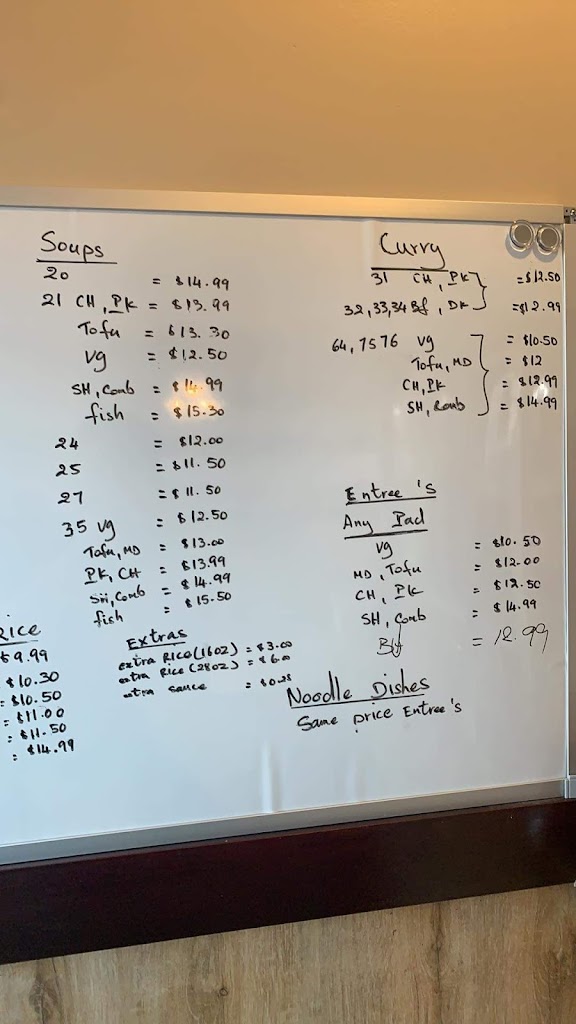 Soups
20 = $14.99
21 CH, PK = $13.99
Tofu = $13.30
Vg = $12.50
SH, Comb = $14.99
fish = $15.30
24 = $12.00
25 = $11.50
27 = $11.50
35 Vg = $12.50
Tofu, MD = $13.00
PK, CH = $13.99
SH, Comb = $14.99
fish = $15.50
Rice
$9.99
$10.30
= $10.50
= $11.00
= $11.50
= $14.99
Extras
extra Rice (16oz) = $3.00
extra Rice (28oz) = $6.00
extra sauce =
Curry
31 CH, PK = $12.50
32,33,34 Bf, DK = $12.99
64, 75 76 Vg = $10.50
Tofu, MD = $12
CH, PK = $12.99
SH, Comb = $14.99
Entree's
Any Pad
Vg = $10.50
MD, Tofu = $12.00
CH, PK = $12.50
SH, Comb = $14.99
Bf = 12.99
Noodle Dishes
Same price Entree's